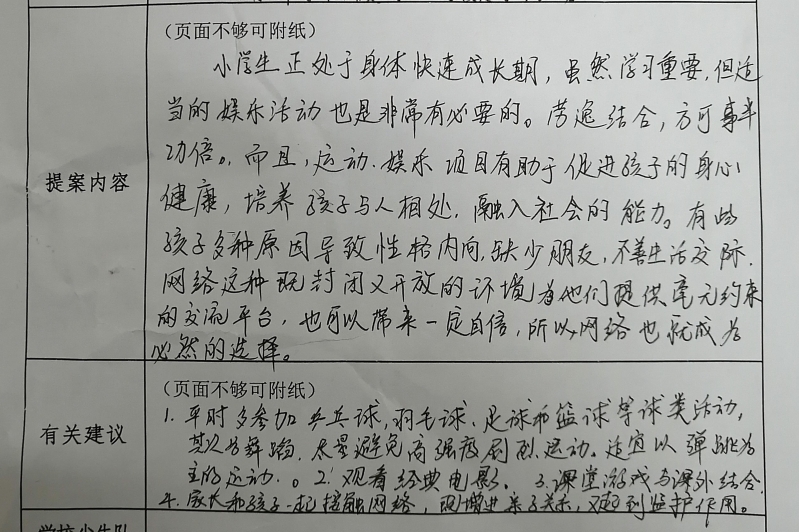 (页面不够可附纸)
小学生正处于身体快速成长期，虽然学习重要，但适
当的娱乐活动也是非常有必要的。劳逸结合，方可事半
功倍。而且，运动、娱乐项目有助于促进孩子的身心
提案内容
健康，培养孩子与人相处，融入社会的能力。有些
孩子多种原因导致性格内向，缺少朋友，不善生活交际.
网络这种既封闭又开放的环境为他们提供毫无约束
的交流平台，也可以带来一定自信，所以网络也就成为
必然的选择。
(页面不够可附纸)
1. 平时多参加乒乓球，羽毛球、足球和篮球等球类活动，
有关建议
其次为舞蹈，尽量避免高强度剧烈运动。适宜以弹跳为
主的运动.。2. 观看经典电影。3. 课堂游戏与课外结合.
4. 家长和孩子一起接触网络，既增进亲子关系，又起到监护作用。